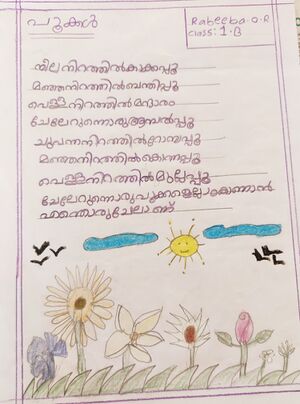 പൂക്കൾ
Rabeeba.O.R
Class: 1.B
നീല നിറത്തിൽ കാക്കപ്പൂ
മഞ്ഞ നിറത്തിൽ ബന്തിപ്പൂ
വെള്ള നിറത്തിൽ മന്ദാരം
ചേലേറുന്നൊരു ആമ്പൽപ്പൂ
ചുവന്ന നിറത്തിൽ റോസപ്പൂ
മഞ്ഞ നിറത്തിൽ കൊന്നപ്പൂ
വെള്ള നിറത്തിൽ മുല്ലപ്പൂ
ചേലേറുന്നൊരു പൂക്കളെല്ലാം കാണാൻ
എന്തൊരു ചേലാണ്